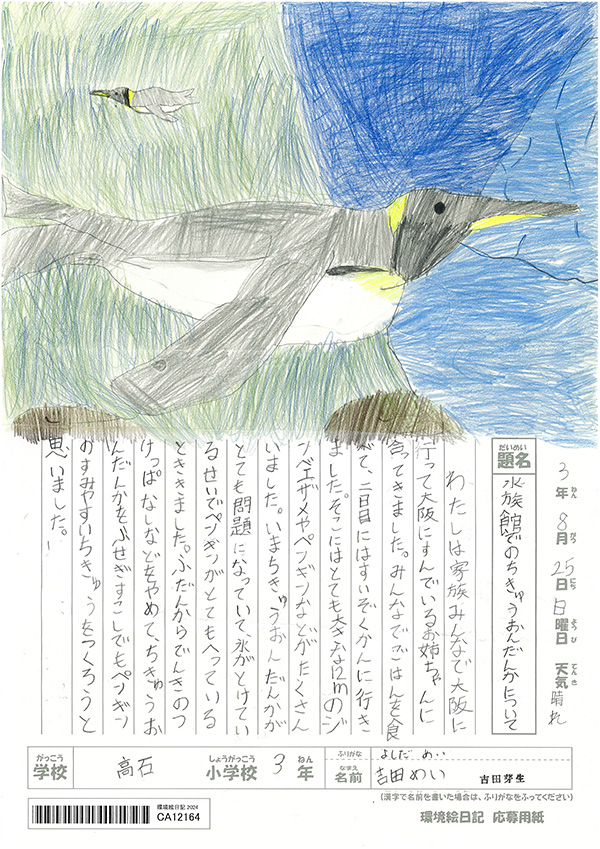 3年 8月 25日 日曜日 天気 晴れ
ねん がつ にち ようび てんき
だいめい
題名
水族館でのちきゅうおんだんかについて
わたしは家族みんなで大阪に
行って大阪にすんでいるお姉ちゃんに
会ってきました。みんなでごはんを食
べて、二日目にはすいぞくかんに行き
ました。そこにはとても大きな12mのジ
ンベエザメやペンギンなどがたくさん
いました。いまちきゅうおんだんかが
とても問題になっていて、氷がとけてい
るせいでペンギンがとてもへっている
とききました。ふだんからでんきのつ
けっぱなしなどをやめて、ちきゅうお
んだんかをふせぎすこしでもペンギン
のすみやすいちきゅうをつくろうと
思いました。
がっこう
学校
高石
しょうがっこう
小学校
3
ねん
年
ふりがな
よしだ め
なまえ
名前
吉田めい 吉田芽生
(漢字で名前を書いた場合は、ふりがなをふってください)
環境絵日記2024
CA12164
環境絵日記 応募用紙